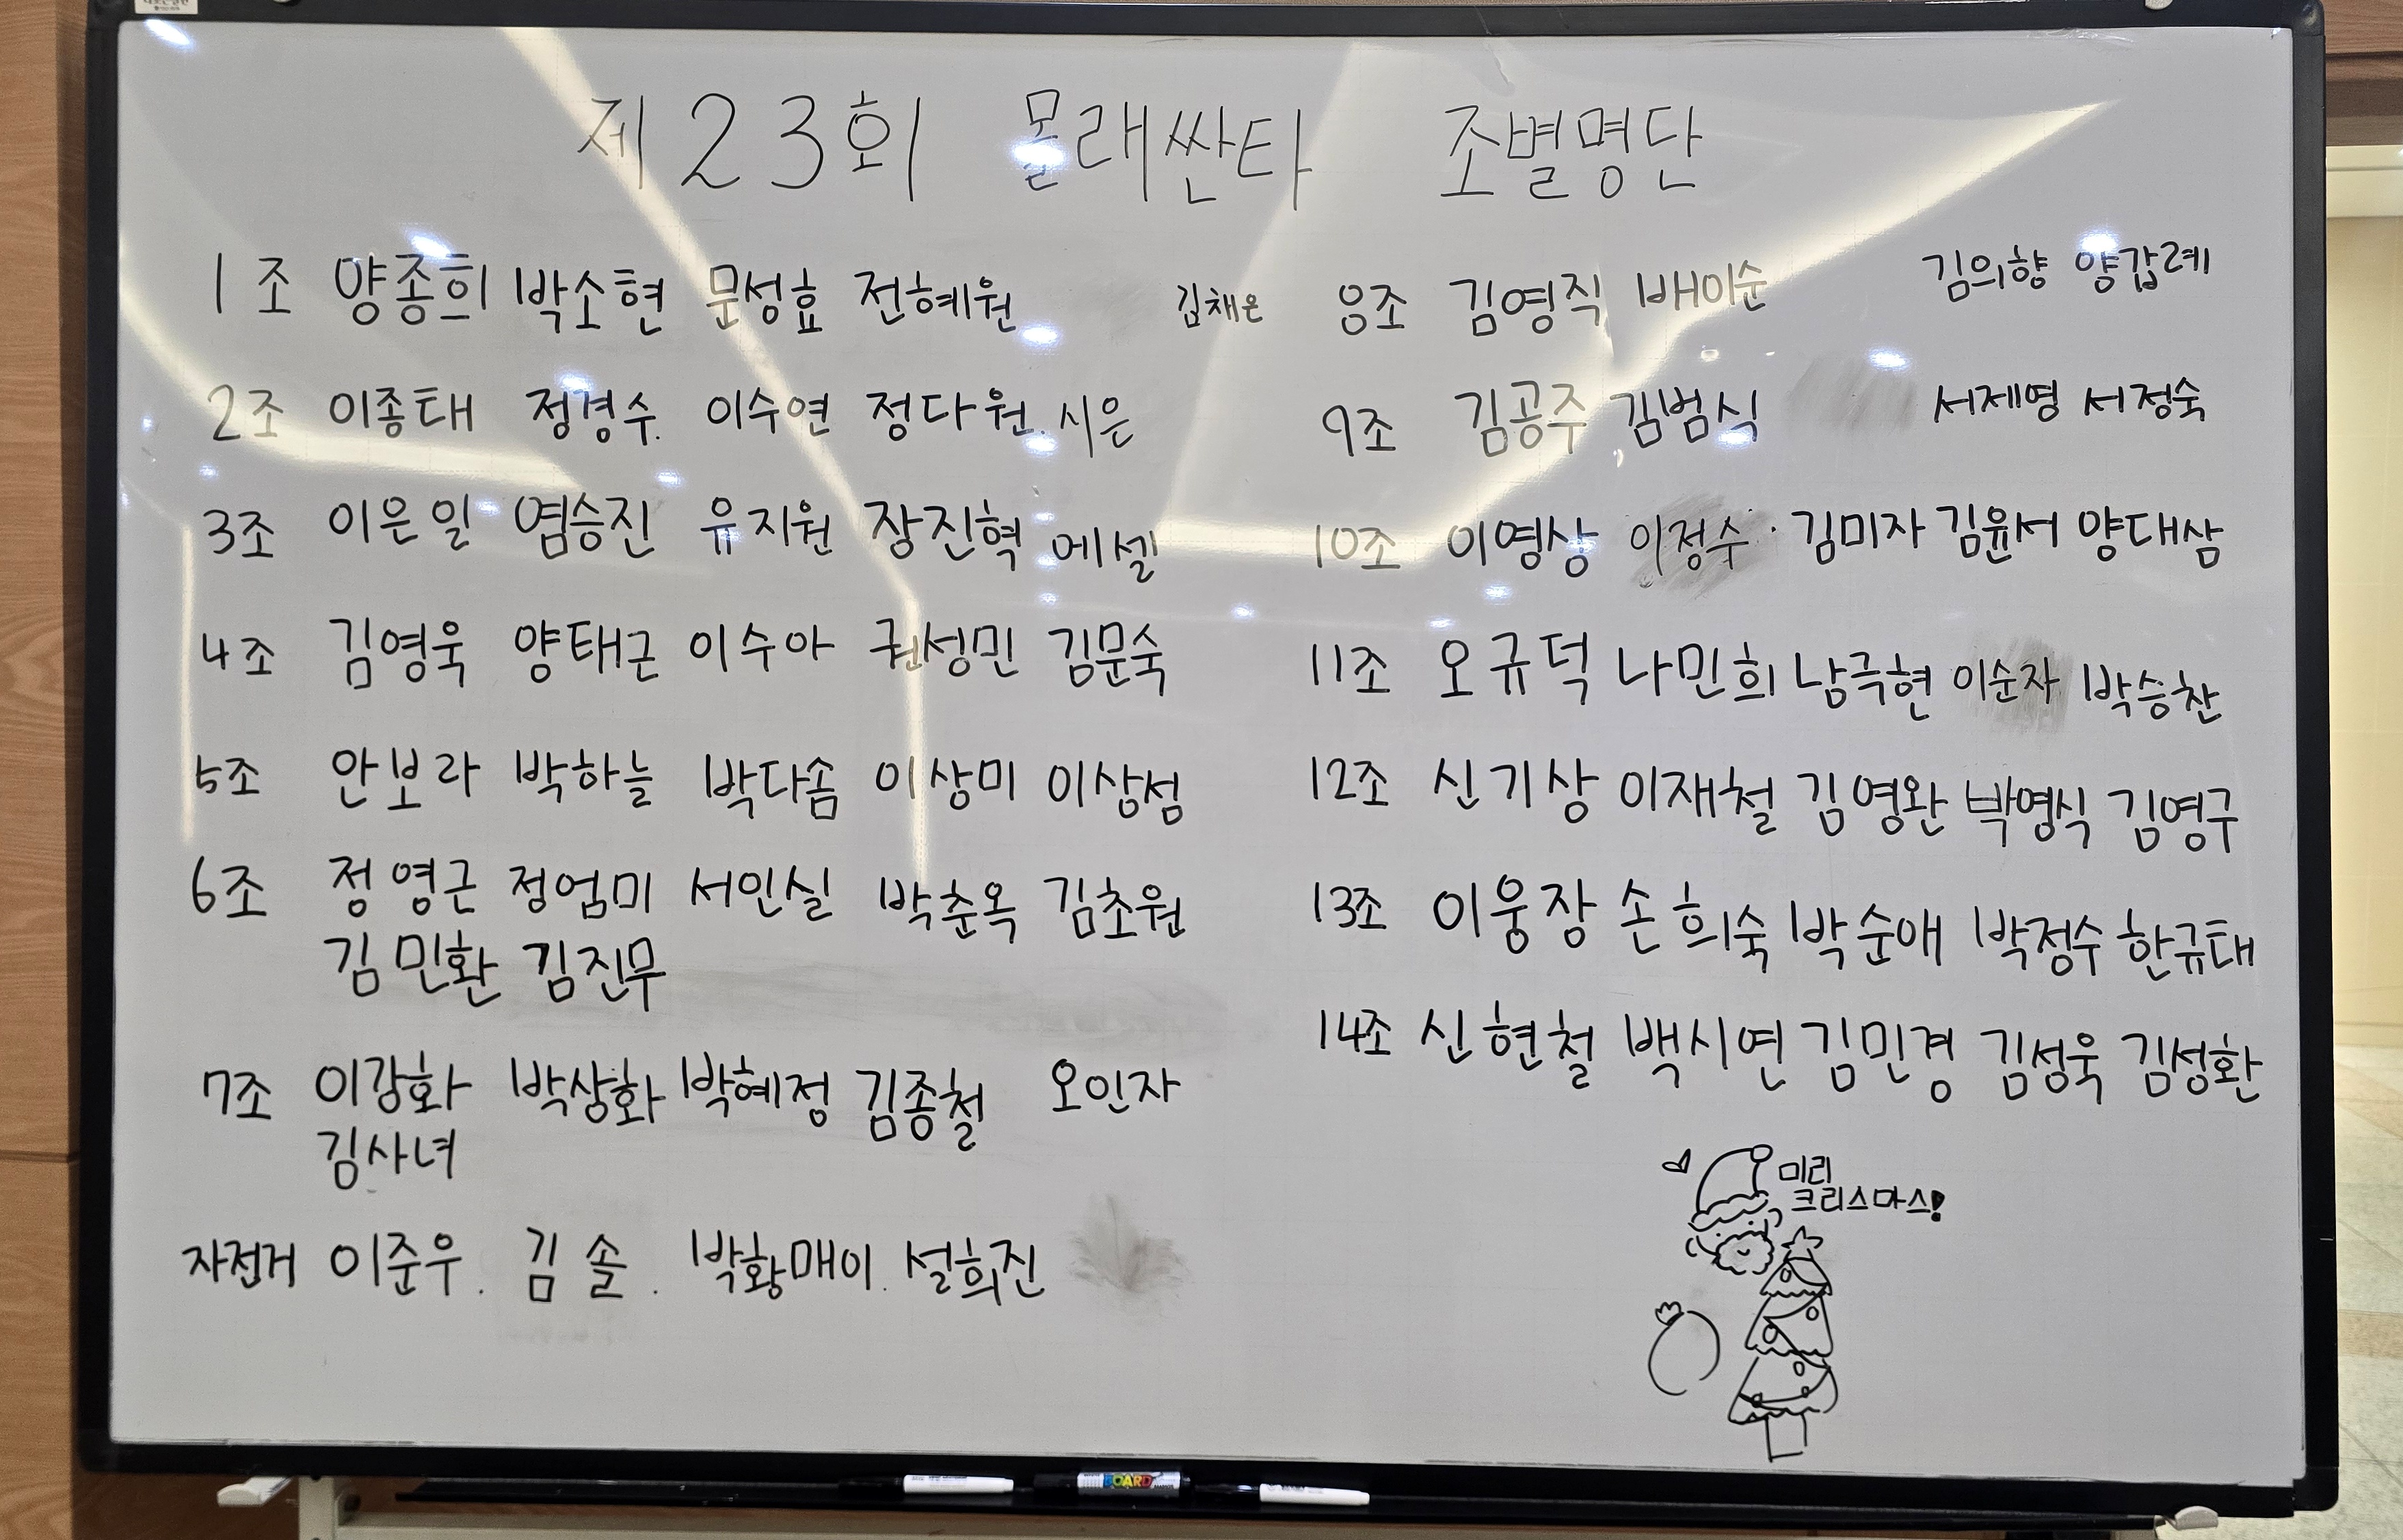 제23회 몰래싼타 조별명단
1조 양종희 박소현 문성효 전혜원 김채은
2조 이종태 정경수. 이수연 정다원. 시은
3조 이은일 염승진 유지원 장진혁 에셀
4조 김영욱 양태근 이수아 권성민 김문숙
5조 안보라 박하늘 박다솜 이상미 이상섬
6조 정영근 정엄미 서인실 박춘옥 김초원
김민환 김진무
7조 이강화 박상화 박혜정 김종철 오인자
김사녀
자전거 이준우. 김솔. 박황매이. 설희진
8조 김영직 배이순 김의향 양갑례
9조 김공주 김범식 서제영 서정숙
10조 이영상 이정수 · 김미자 김윤서 양대삼
11조 오규덕 나민희 남극현 이순자 박승찬
12조 신기상 이재철 김영완 박영식 김영구
13조 이웅장 손희숙 박순애 박정수 한규태
14조 신현철 백시연 김민경 김성욱 김성환
미리
크리스마스!
BOARD